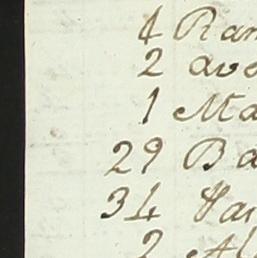 4 Ran
2 ave
1 Ma
29 Ba
34 Var
2 Al